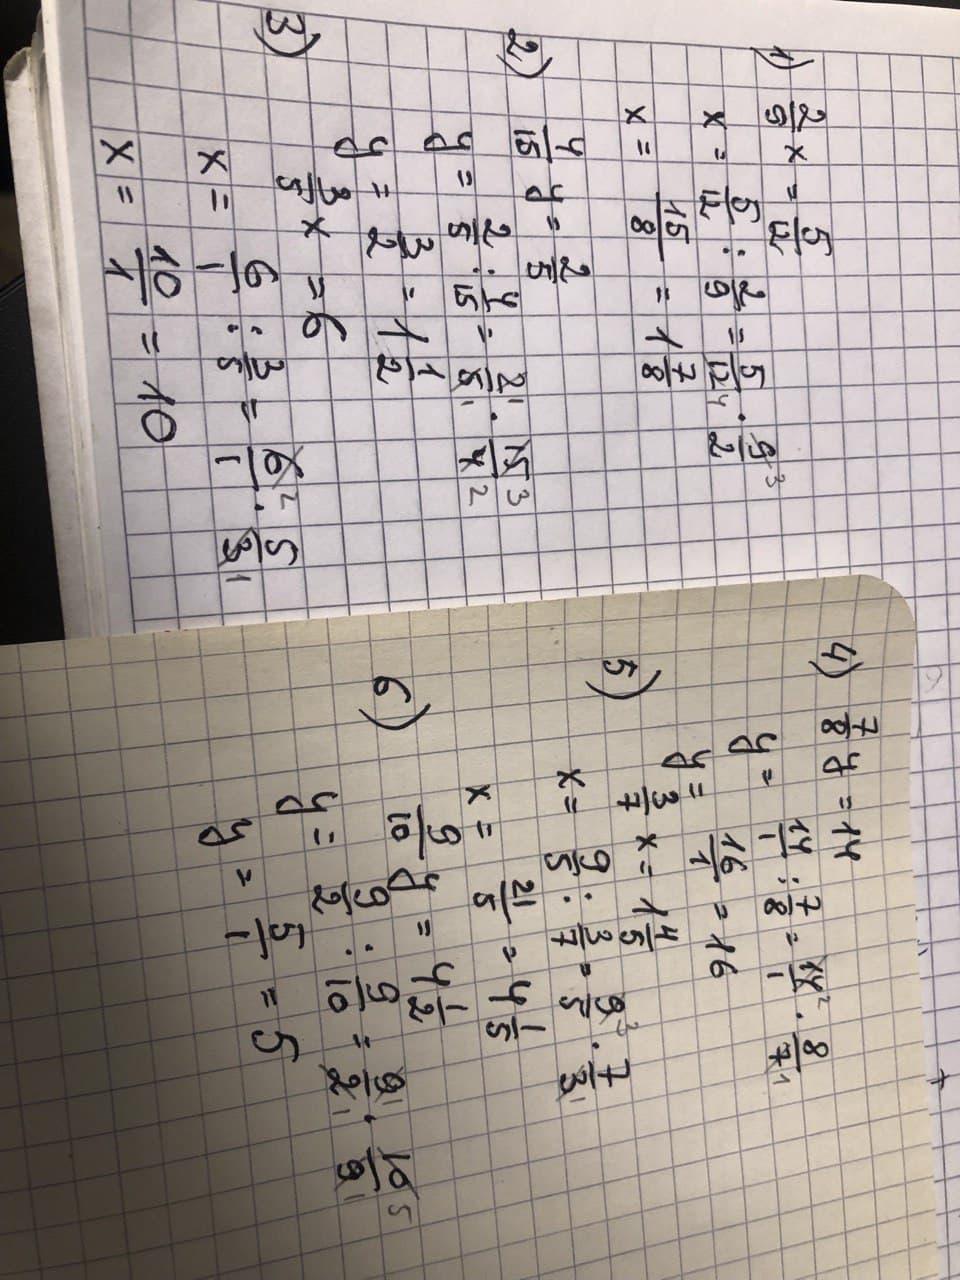 1) 2/9 x = 5/12
x = 5/12 : 2/9 = 5/12⁴ · 9³/2
x = 15/8 = 1 7/8
2) 4/15 y = 2/5
y = 2/5 : 4/15 = 2¹/5¹ · 15³/4²
y = 3/2 = 1 1/2
3) 3/5 x = 6
x = 6/1 : 3/5 = 6²/1 · 5/3¹
x = 10/1 = 10
4) 7/8 y = 14
y = 14/1 : 7/8 = 14²/1 · 8/7¹
y = 16/1 = 16
5) 3/7 x = 1 4/5
x = 9/5 : 3/7 = 9³/5 · 7/3¹
x = 21/5 = 4 1/5
6) 9/10 y = 4 1/2
y = 9/2 : 9/10 = 9¹/2¹ · 10⁵/9¹
y = 5/1 = 5